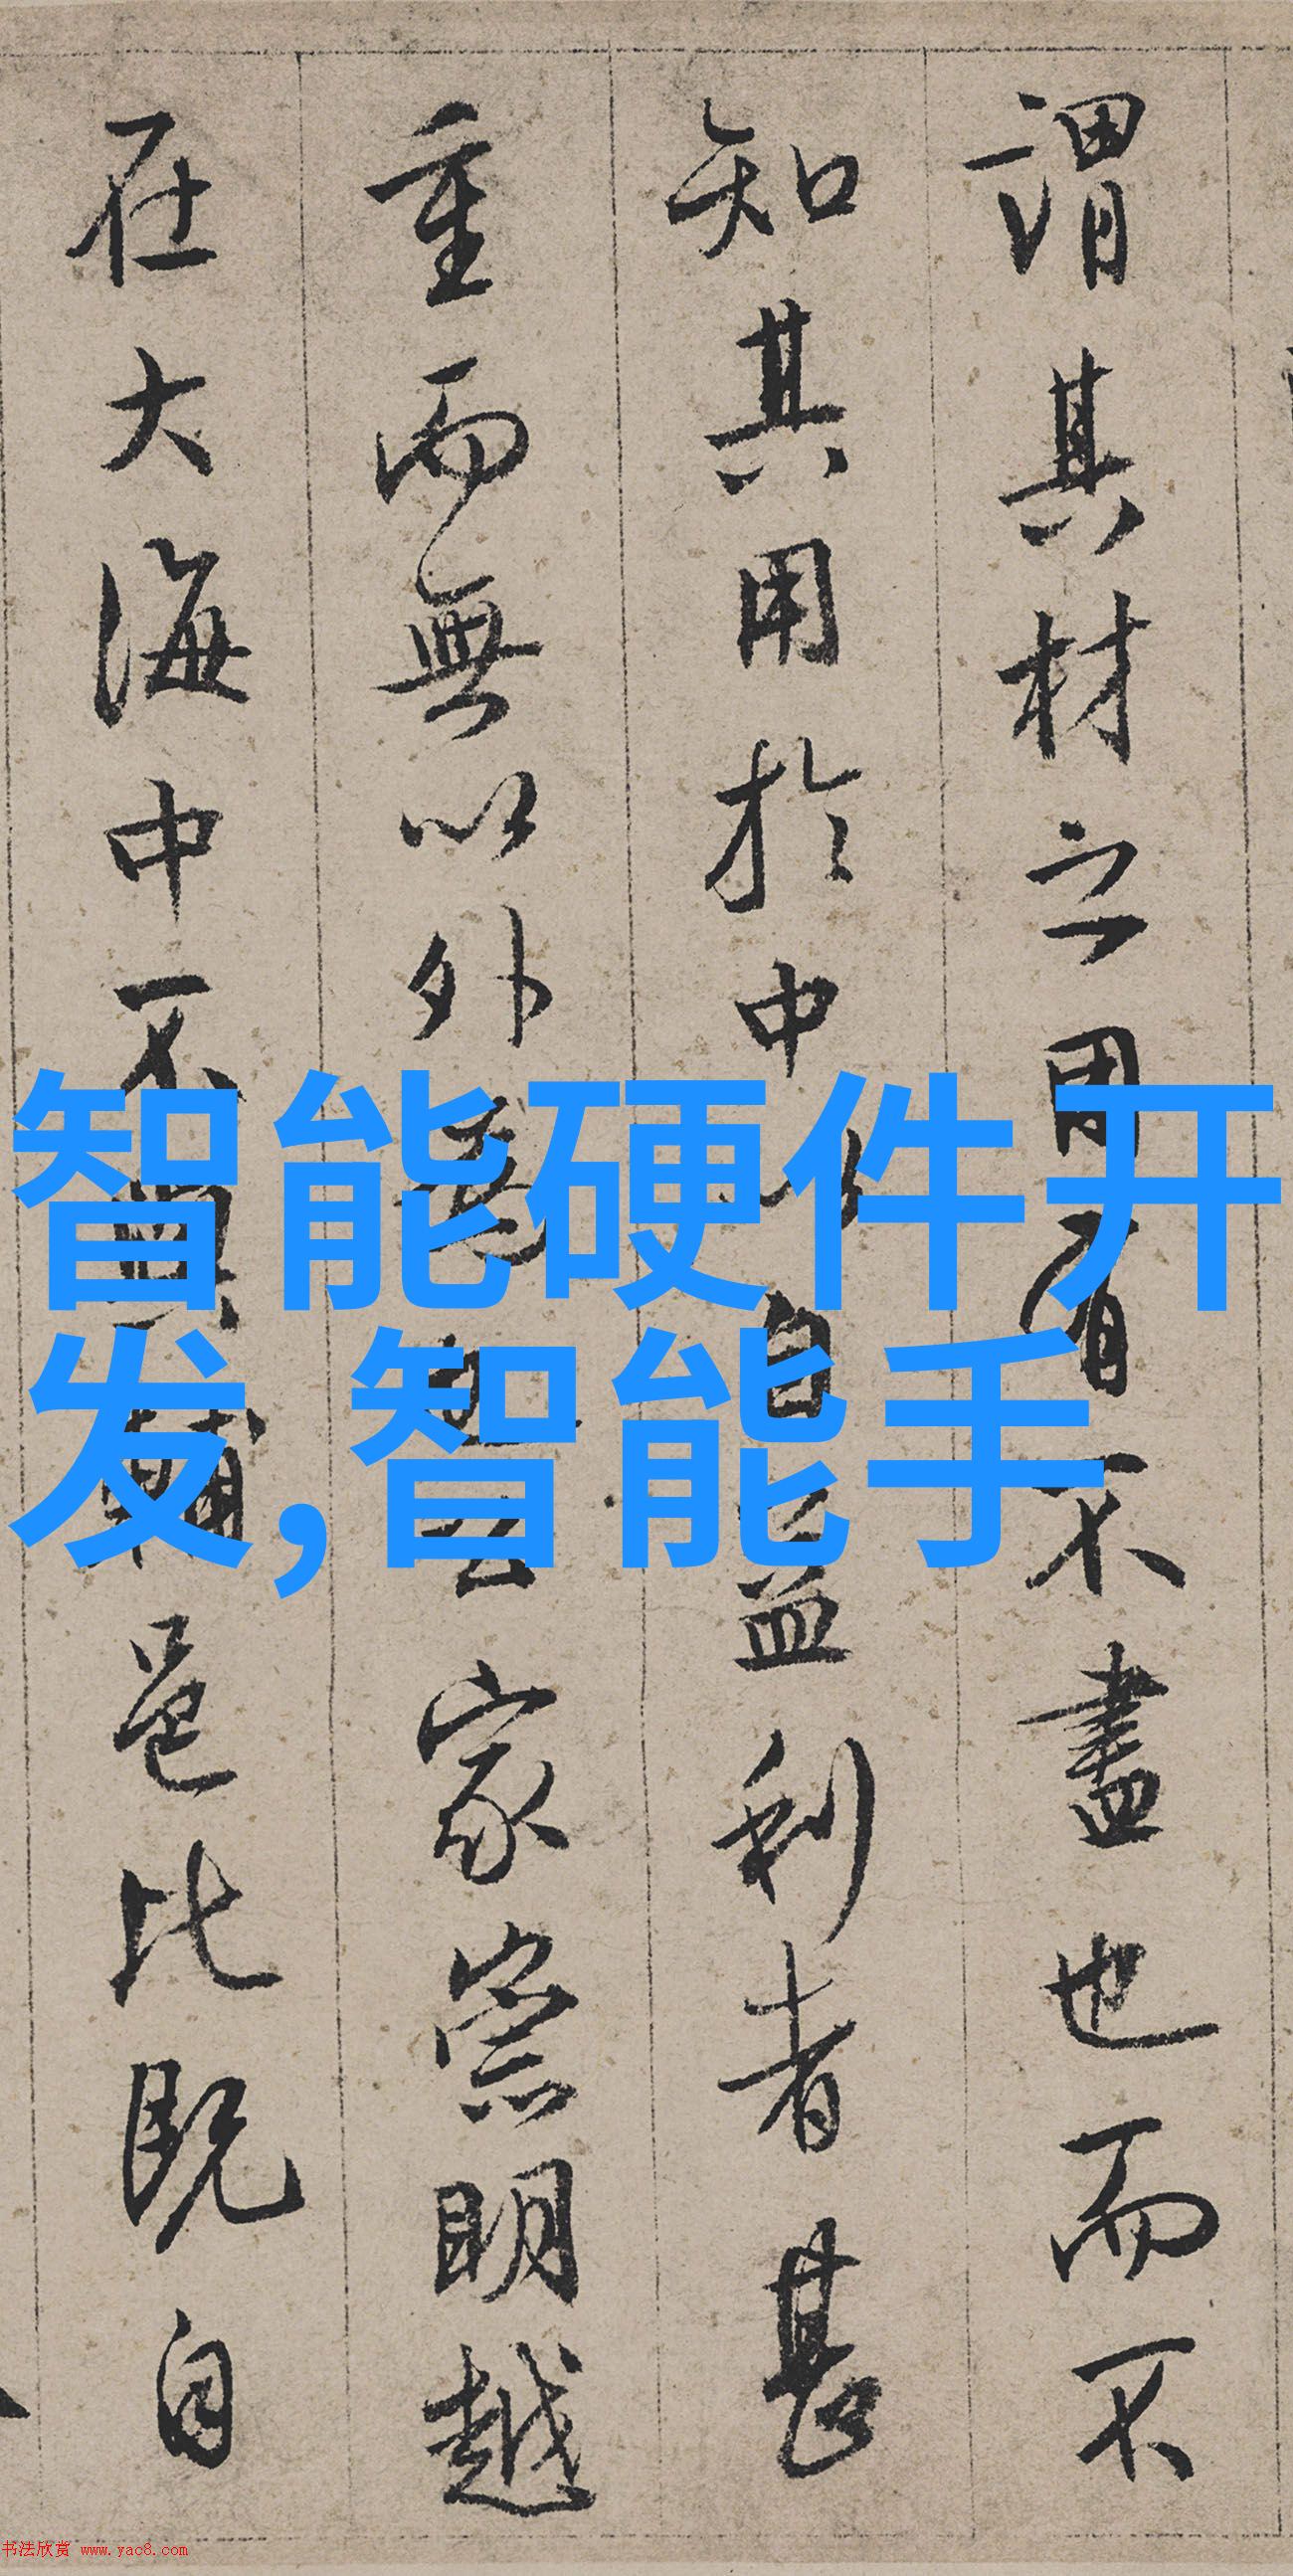 謂其材之用有不盡也而不
知其用於中以自益利者甚
重而無以外
家崇明越
在大海中不與輔邑比既自
智能硬件开
发,智能手
书法欣赏 www.yac8.com